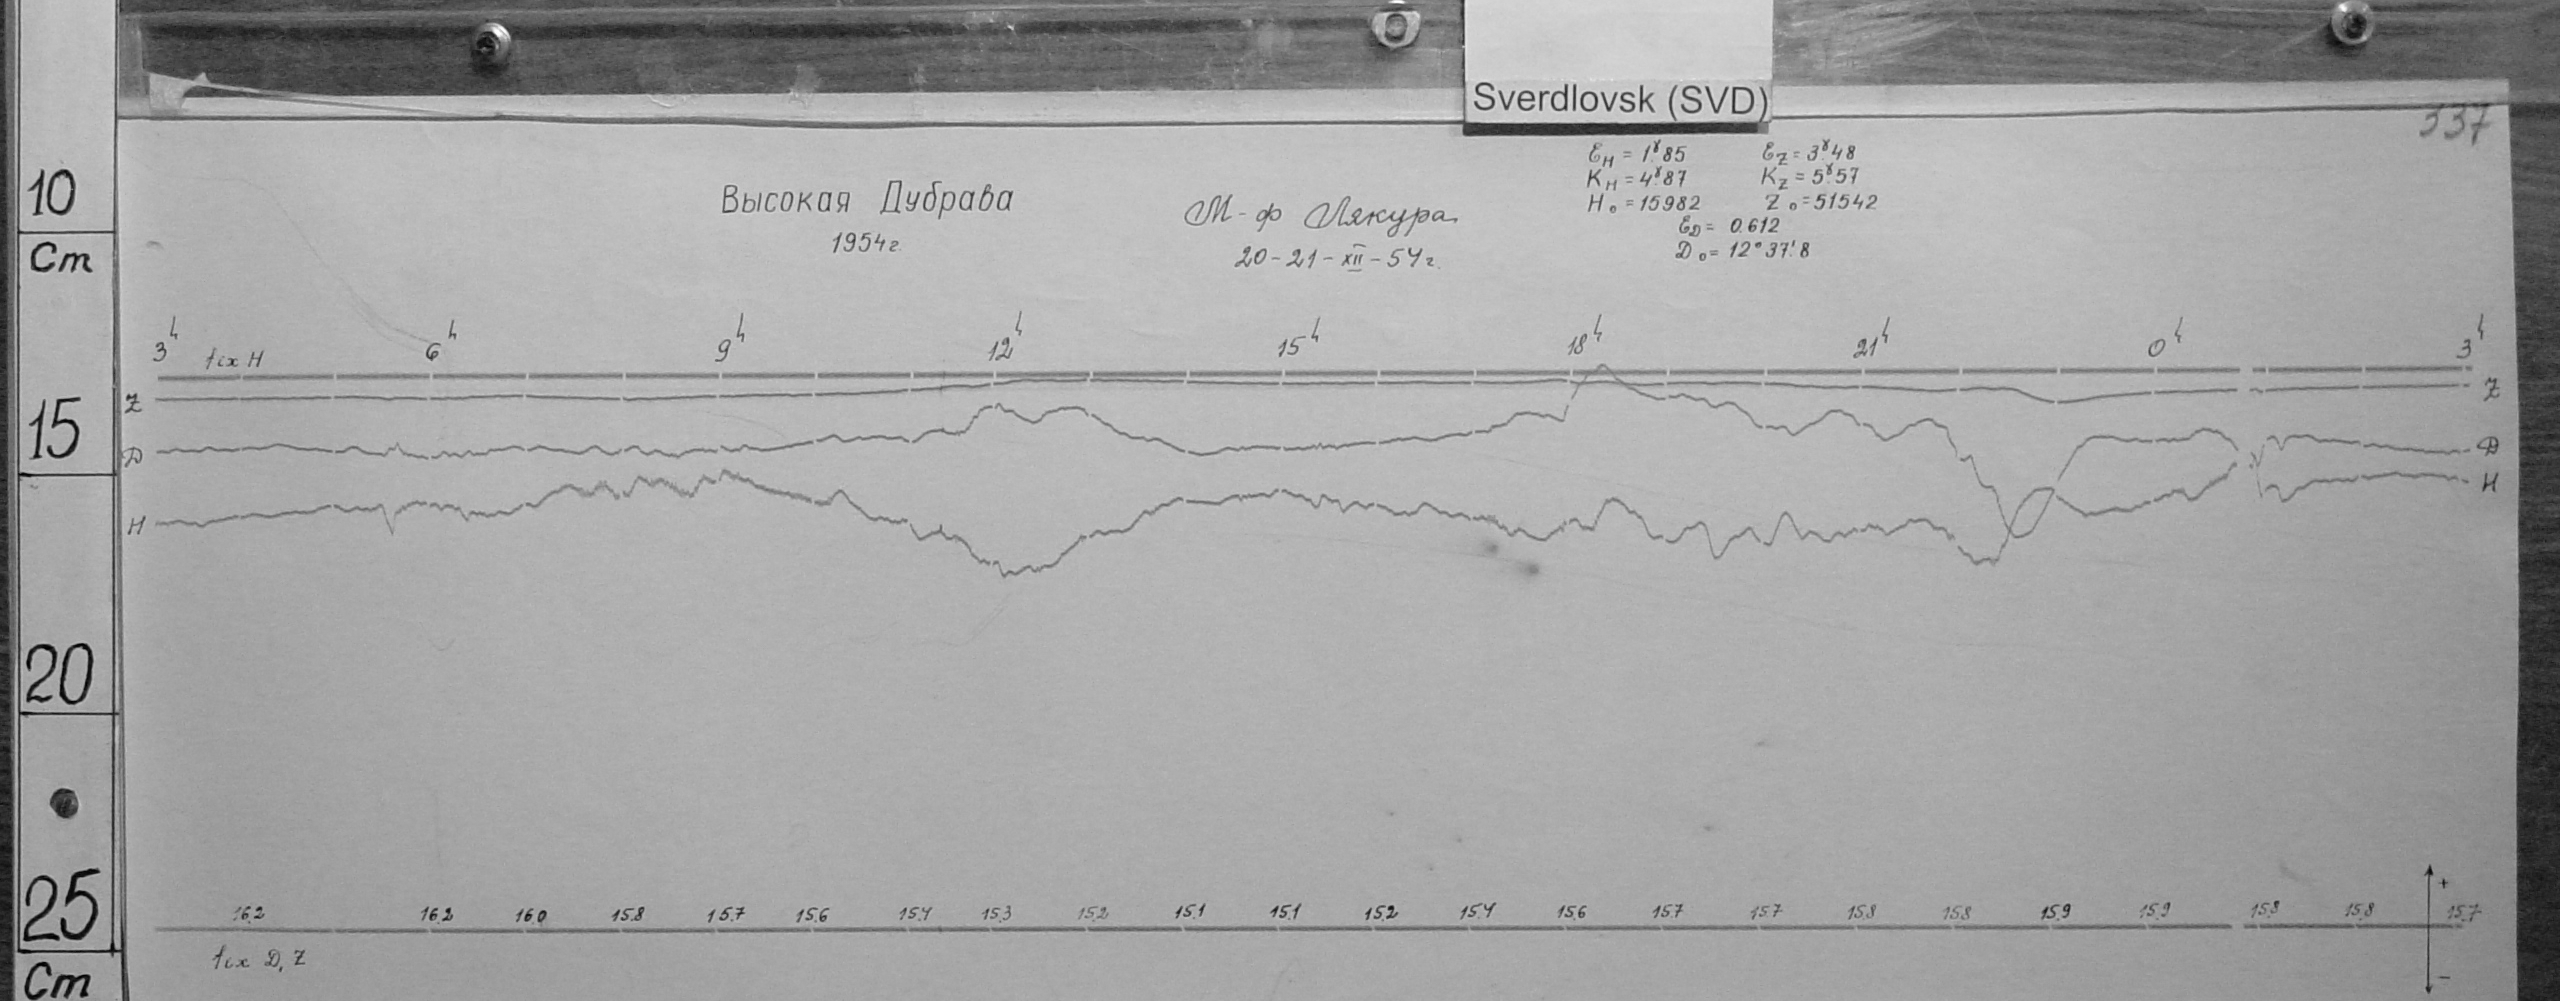 Sverdlovsk (SVD)
337
10
Cm
15
20
25
Cm
Высокая Дубрава
1954 г.
М-ф Лякура
20-21-XII-54 г.
ε_H = 1.ᵞ85 ε_Z = 3.ᵞ48
K_H = 4.ᵞ87 K_Z = 5.ᵞ57
H₀ = 15982 Z₀ = 51542
ε_D = 0.612
D₀ = 12°37.'8
3ʰ 6ʰ 9ʰ 12ʰ 15ʰ 18ʰ 21ʰ 0ʰ 3ʰ
fix H
Z Z
D D
H H
16.2 16.2 16.0 15.8 15.7 15.6 15.4 15.3 15.2 15.1 15.1 15.2 15.4 15.6 15.7 15.7 15.8 15.8 15.9 15.9 15.8 15.8 15.7
fix D, Z
+
−